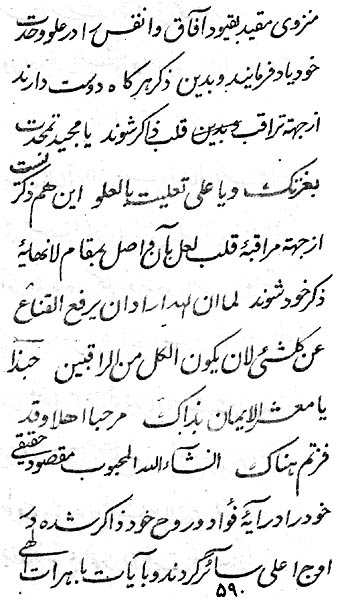 منزوی مقید بقیود آفاق و انفس را در علو وحدت
خود یاد فرمایند و بدین ذکر هر گاه دوست دارند
از جهة تراقب و بدین قلب ذاکر شوند یا مجید تمجدت
بعزتک و یا علی تعلیت بالعلو این هم ذکر
از جهة مراقبهٔ قلب لعل بآن واصل بمقام لانهایهٔ
ذکر خود شوند لما ان لهذا اراد ان یرفع القناع
عن کلشئ لان یکون الکل من الراقبین حبذا
یا معشر الایمان بذاک مرحبا اهلا وقد
فزتم هناک انشاء الله المحبوب مقصود حقیقی
خود را در آیهٔ فؤاد و روح خود ذاکر شده در
اوج اعلی سائر گردند و بآیات باهرات الهی
۵۹۰